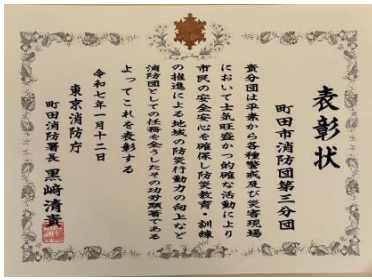 表彰状
町田市消防団第三分団
貴分団は平素から各種警戒及び災害現場
において士気旺盛かつ的確な活動により
市民の安全安心を確保し防災教育・訓練
の推進による地域の防災行動力の向上など
消防団としての任務を全うしたその功労顕著である
よってこれを表彰する
令和七年一月十二日
東京消防庁
町田消防署長 黒﨑清貴